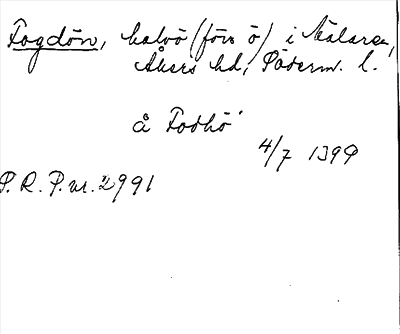 Fogdön, halvö (förr ö) i Mälaren,
Åkers hd, Söderm. l.
å Fodhö
4/7 1399
P.R.P. nr. 2991